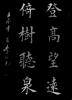 登高望遠
倚樹聽泉